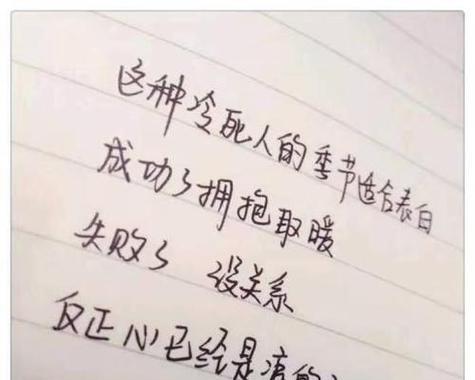 这种冷死人的季节适合表白
成功了拥抱取暖
失败了 没关系
反正心已经是凉的